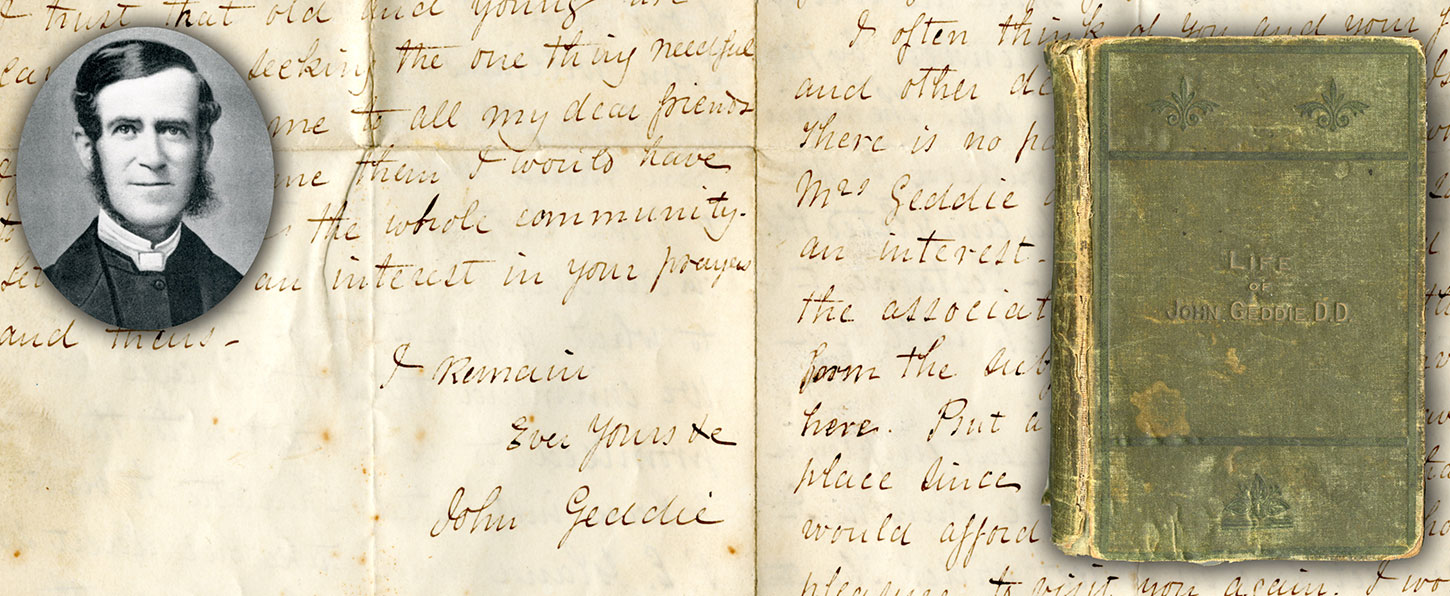 I trust that old and young are
seeking the one thing needful
me to all my dear friends
me them I would have
the whole community.
an interest in your prayers
and theirs –
I Remain
Ever Yours &c
John Geddie
I often think of you and your
and other
There is no
Mrs Geddie
an interest
the associat
from the sub
here. But a
place since
would afford
pleasure to visit you again. I wo
LIFE
OF
JOHN GEDDIE, D.D.